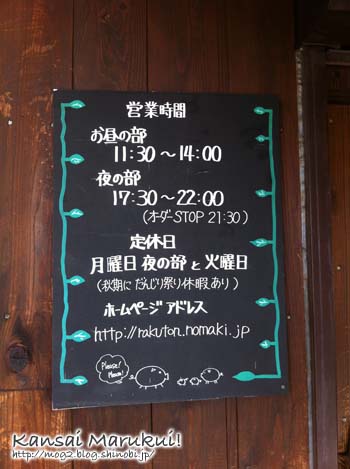 営業時間
お昼の部
11:30〜14:00
夜の部
17:30〜22:00
(オーダーSTOP 21:30)
定休日
月曜日 夜の部と火曜日
(秋期にだんじり祭り休暇あり)
ホームページ アドレス
http://rakuton.nomaki.jp
Kansai Marukui!
http://mog2.blog.shinobi.jp/